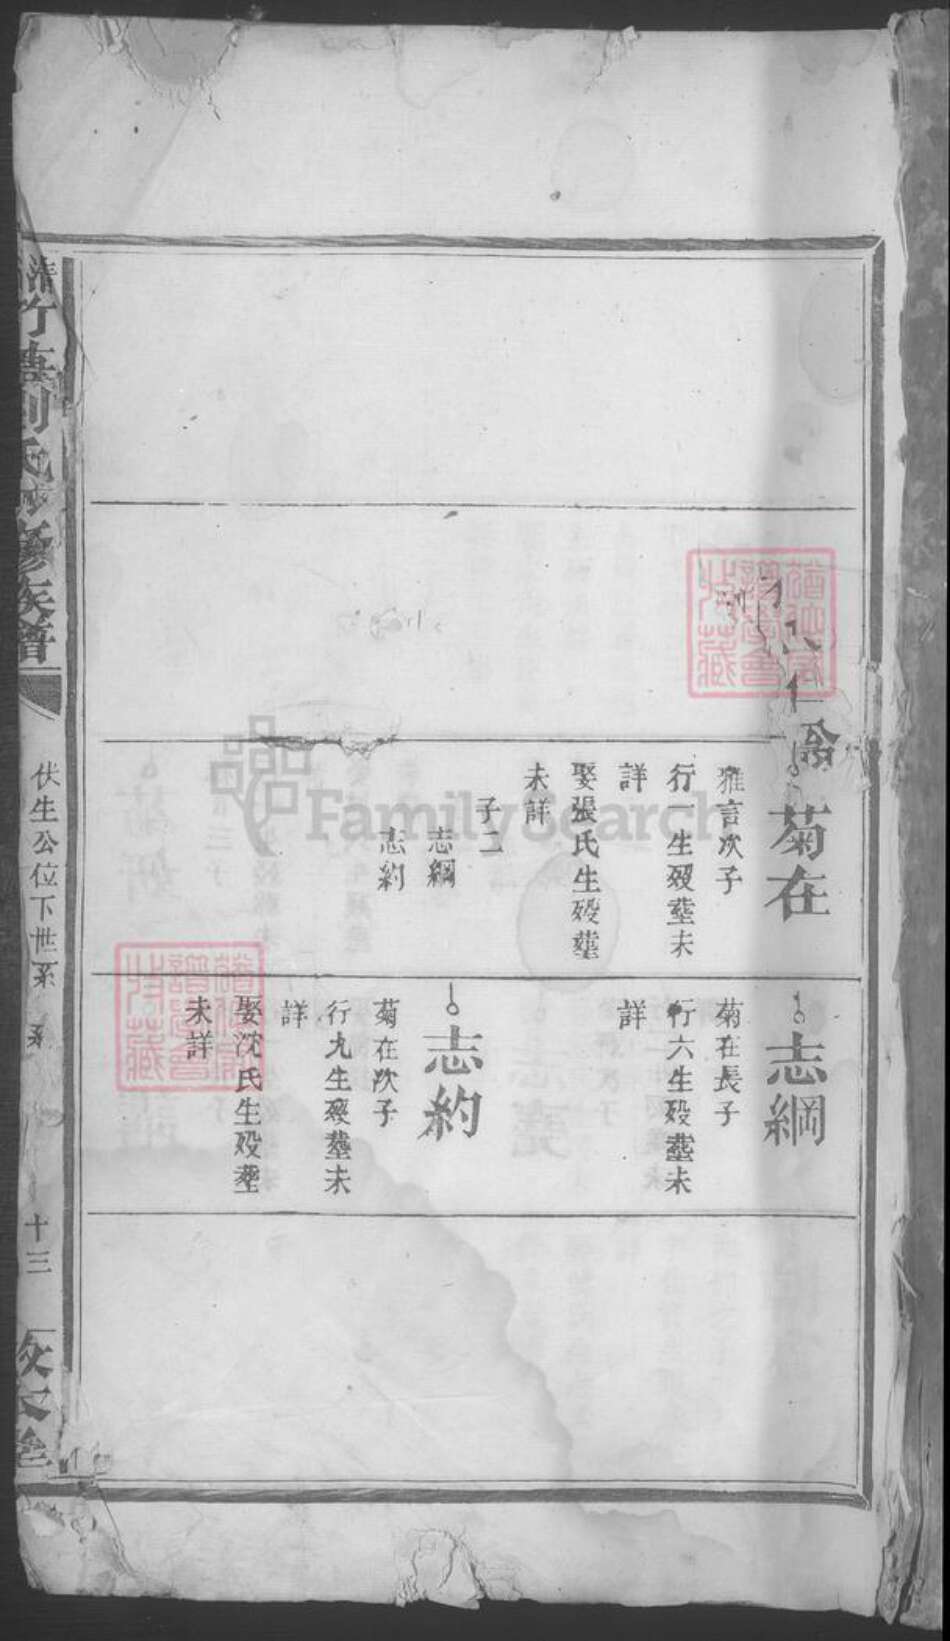 菊在
雅言次子
行一生殁塟未
詳
娶張氏生殁塟
未詳
子二
志綱
志約
志綱
菊在長子
行六生殁塟未
詳
志約
菊在次子
行九生殁塟未
詳
娶沈氏生殁塟
未詳
氏
修族譜
伏生公位下世系
十三
FamilySearch